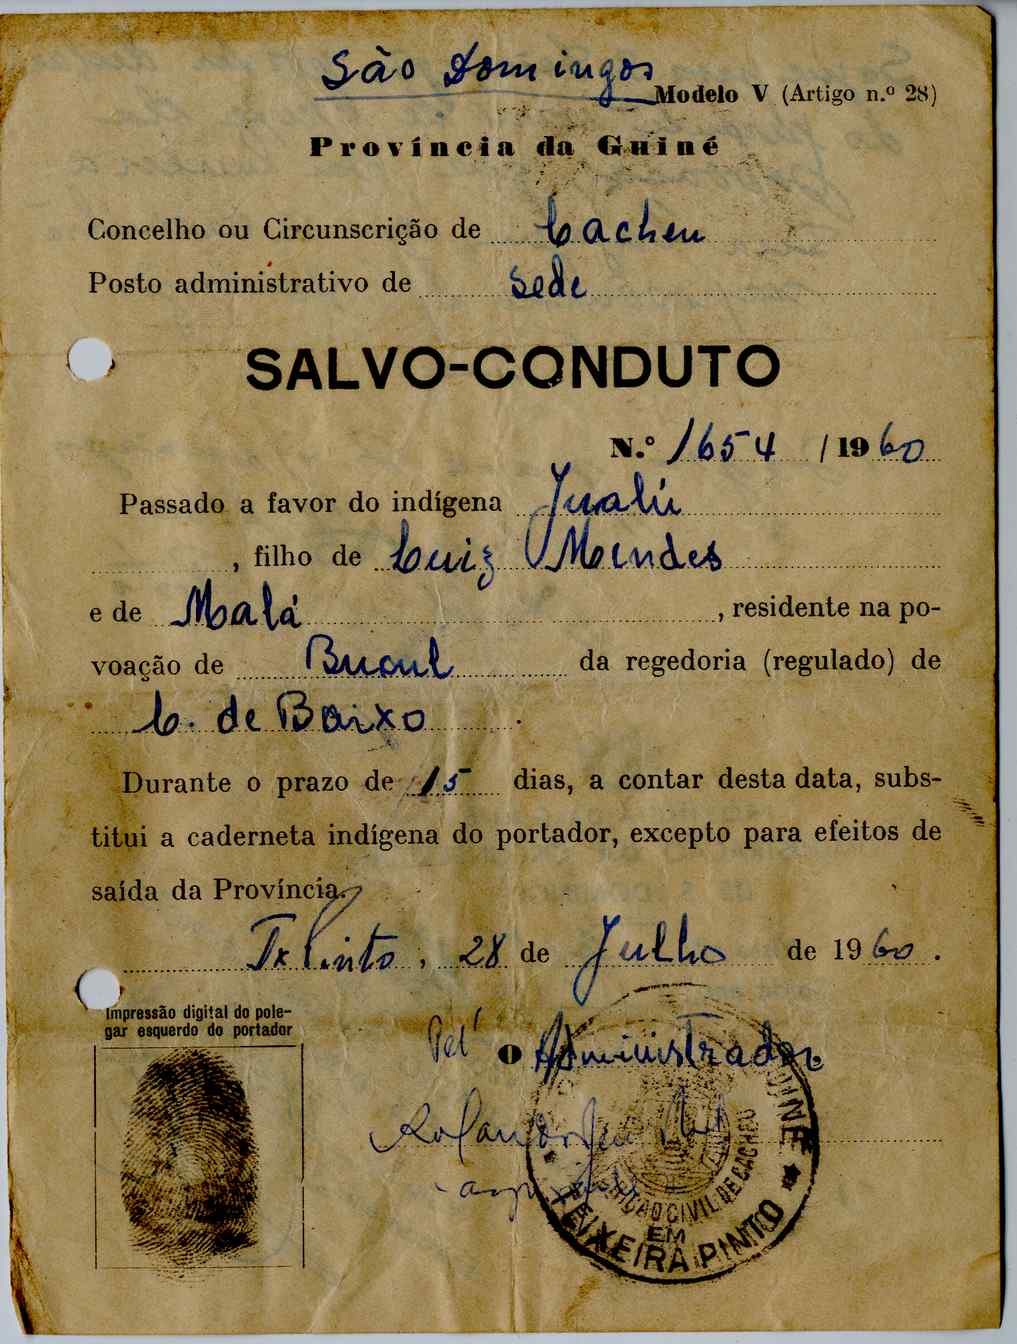 São Domingos
Modelo V (Artigo n.º 28)
Província da Guiné
Concelho ou Circunscrição de Cacheu
Posto administrativo de Sede
SALVO-CONDUTO
N.º 1654 / 1960
Passado a favor do indígena Jualú
, filho de Luiz Mendes
e de Malá , residente na po-
voação de Bucul da regedoria (regulado) de
C. de Baixo .
Durante o prazo de 15 dias, a contar desta data, subs-
titui a caderneta indígena do portador, excepto para efeitos de
saída da Província.
Tx Pinto, 28 de Julho de 1960.
Impressão digital do pole-
gar esquerdo do portador
Pel' O Administrador
GUINÉ
CIVIL DE CACHEU
EM
TEIXEIRA PINTO